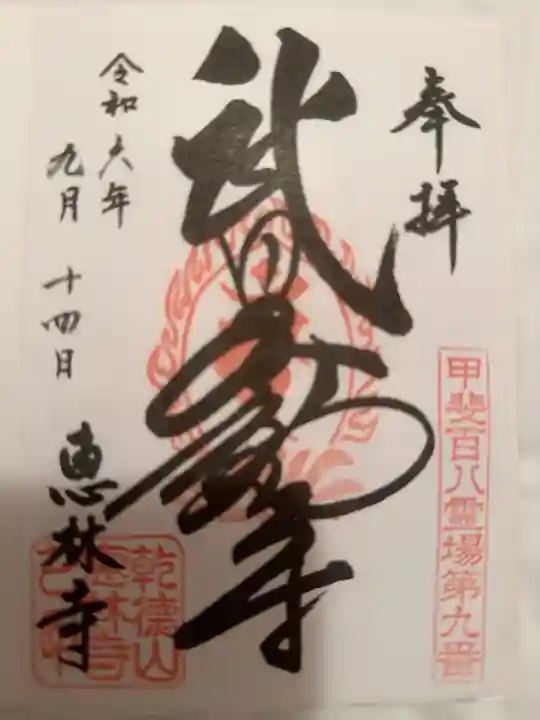 奉拝
甲斐百八霊場第九番
武田不動尊
令和六年
九月 十四日
恵林寺
乾徳山
恵林寺